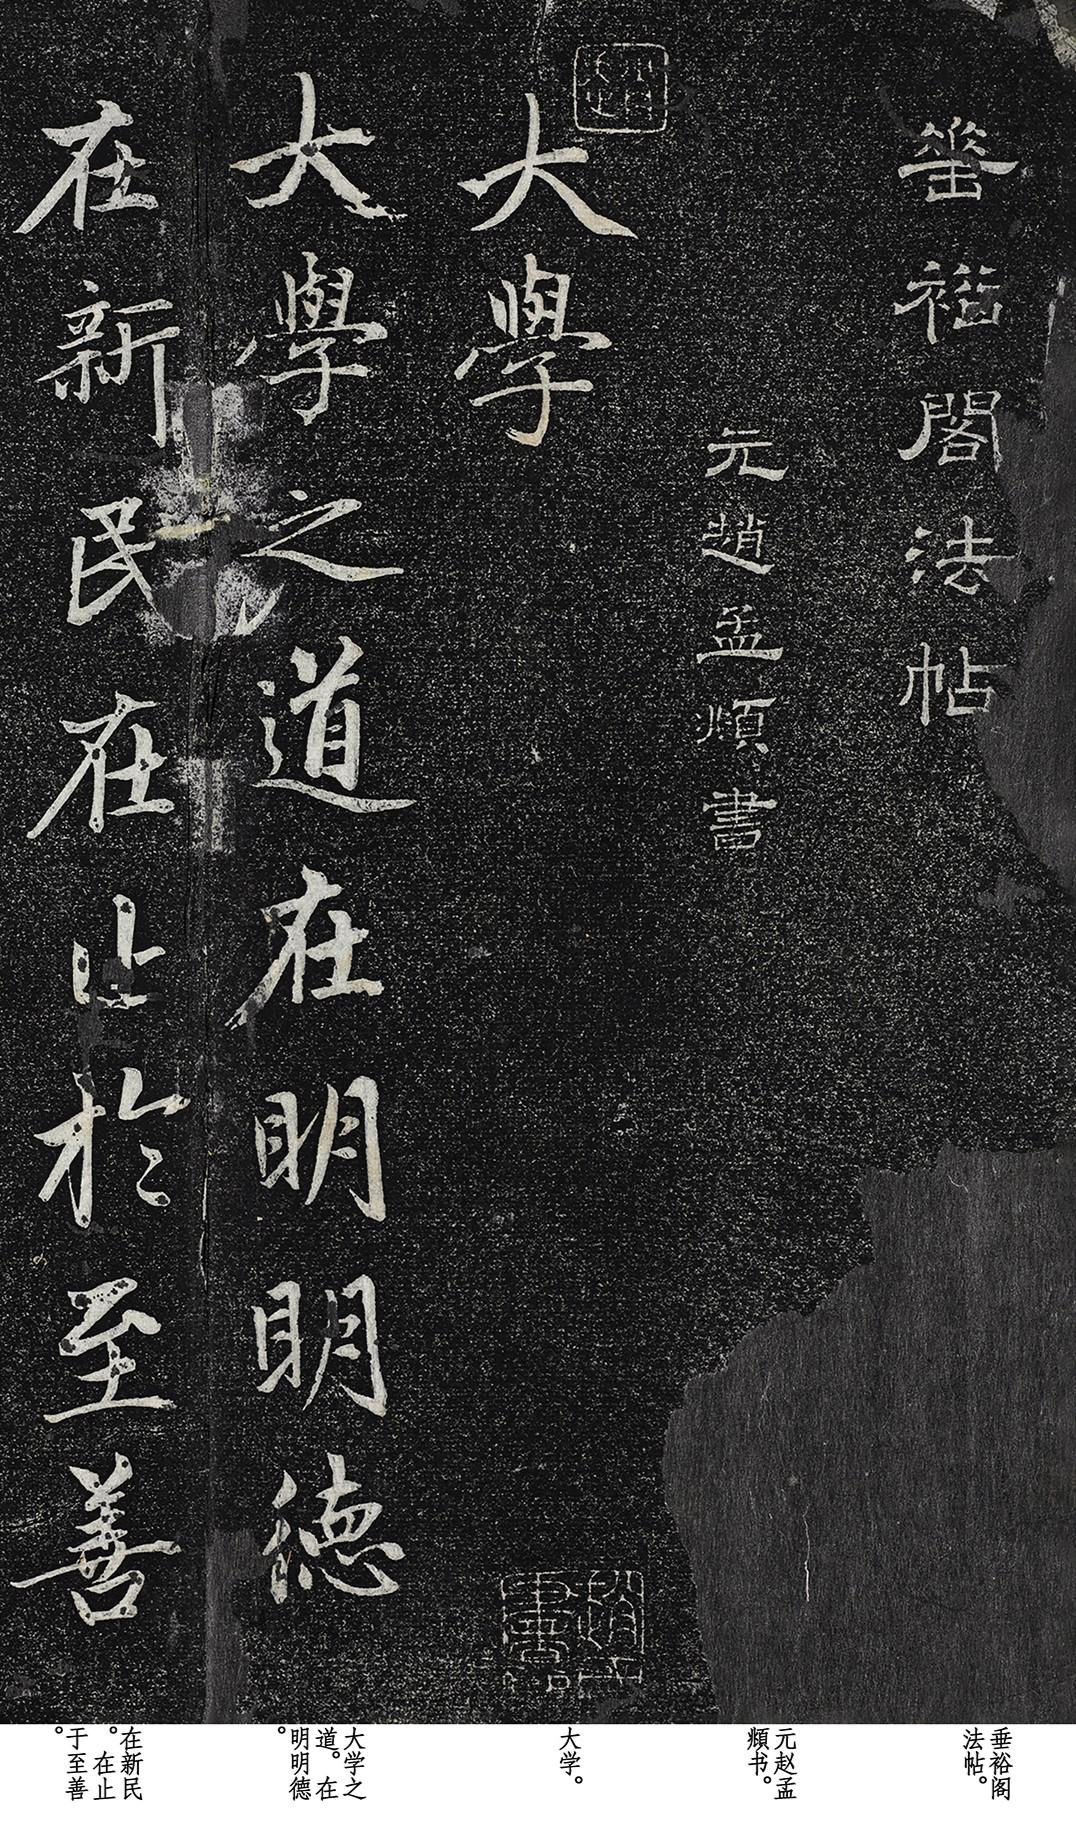 垂裕閣法帖
元趙孟頫書
大學
大學之道在明明德
在新民在止於至善
垂裕阁
法帖。
元赵孟
頫书。
大学。
大学之
道。在
明明德
。
在新民
。在止
于至善
。